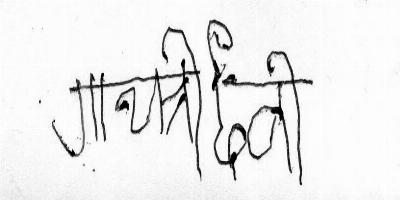 गायत्री देवी